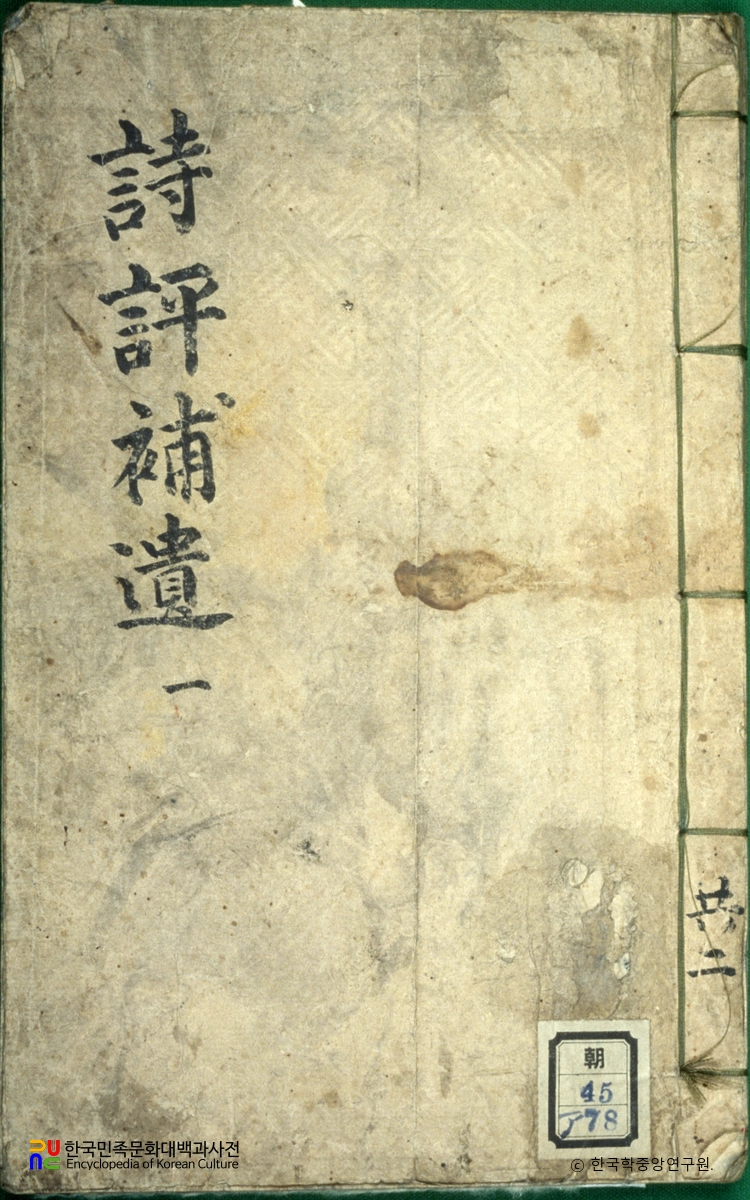 詩評補遺 一
共二
朝
45
ア78
한국민족문화대백과사전
Encyclopedia of Korean Culture
© 한국학중앙연구원.